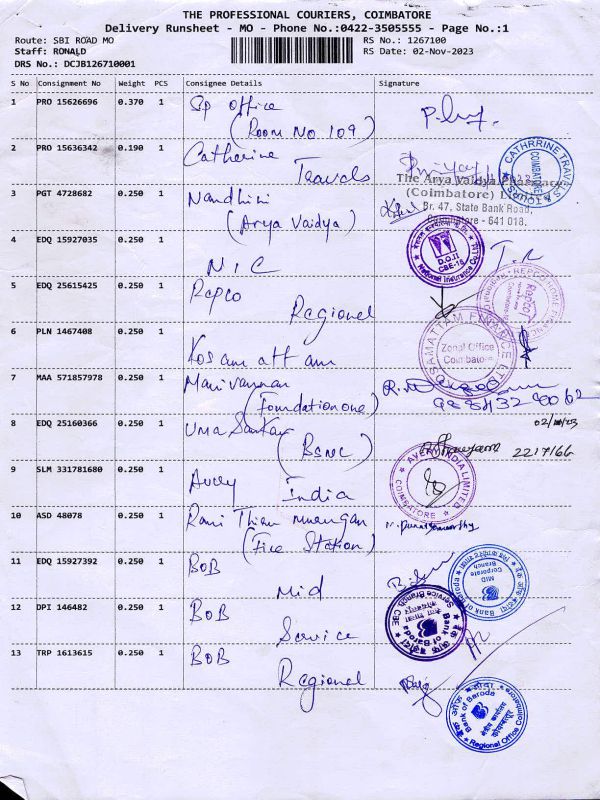 THE PROFESSIONAL COURIERS, COIMBATORE
Delivery Runsheet - MO - Phone No.:0422-3505555 - Page No.:1
Route: SBI ROAD MO
RS No.: 1267100
Staff: RONALD
RS Date: 02-Nov-2023
DRS No.: DCJB126710001
S No Consignment No Weight PCS Consignee Details Signature
1 PRO 15626696 0.370 1 Sp office
(Room No. 109)
2 PRO 15636342 0.190 1 Catherine
Travels
CATHRRINE TRAVELS & TOURS
COIMBATORE
The Arya Vaidya Pharmacy
(Coimbatore) Limited
Br. 47, State Bank Road,
Coimbatore - 641 018.
3 PGT 4728682 0.250 1 Nandhini
(Arya Vaidya)
4 EDQ 15927035 0.250 1 NIC
D.O.II
CBE-18
National Insurance Co.
5 EDQ 25615425 0.250 1 Repco
Regional
REPCO HOME FINANCE
Repco
6 PLN 1467408 0.250 1 Kosamattam
KOSAMATTAM FINANCE LTD
Zonal Office
Coimbatore
7 MAA 571857978 0.250 1 Manivannan
(Foundation one)
8 EDQ 25160366 0.250 1 Uma Sankar
(BSNL)
2217166
9 SLM 331781680 0.250 1 Avery
India
AVERY INDIA LIMITED
COIMBATORE
10 ASD 48078 0.250 1
(Fire Station)
11 EDQ 15927392 0.250 1 BOB
Mid
बैंक ऑफ़ बड़ौदा Bank of Baroda
MID
Corporate
Branch
12 DPI 146482 0.250 1 BOB
Service
Bank of Baroda
Service Branch, CBE
13 TRP 1613615 0.250 1 BOB
Regional
बैंक ऑफ़ बड़ौदा
Bank of Baroda
Regional Office Coimbatore